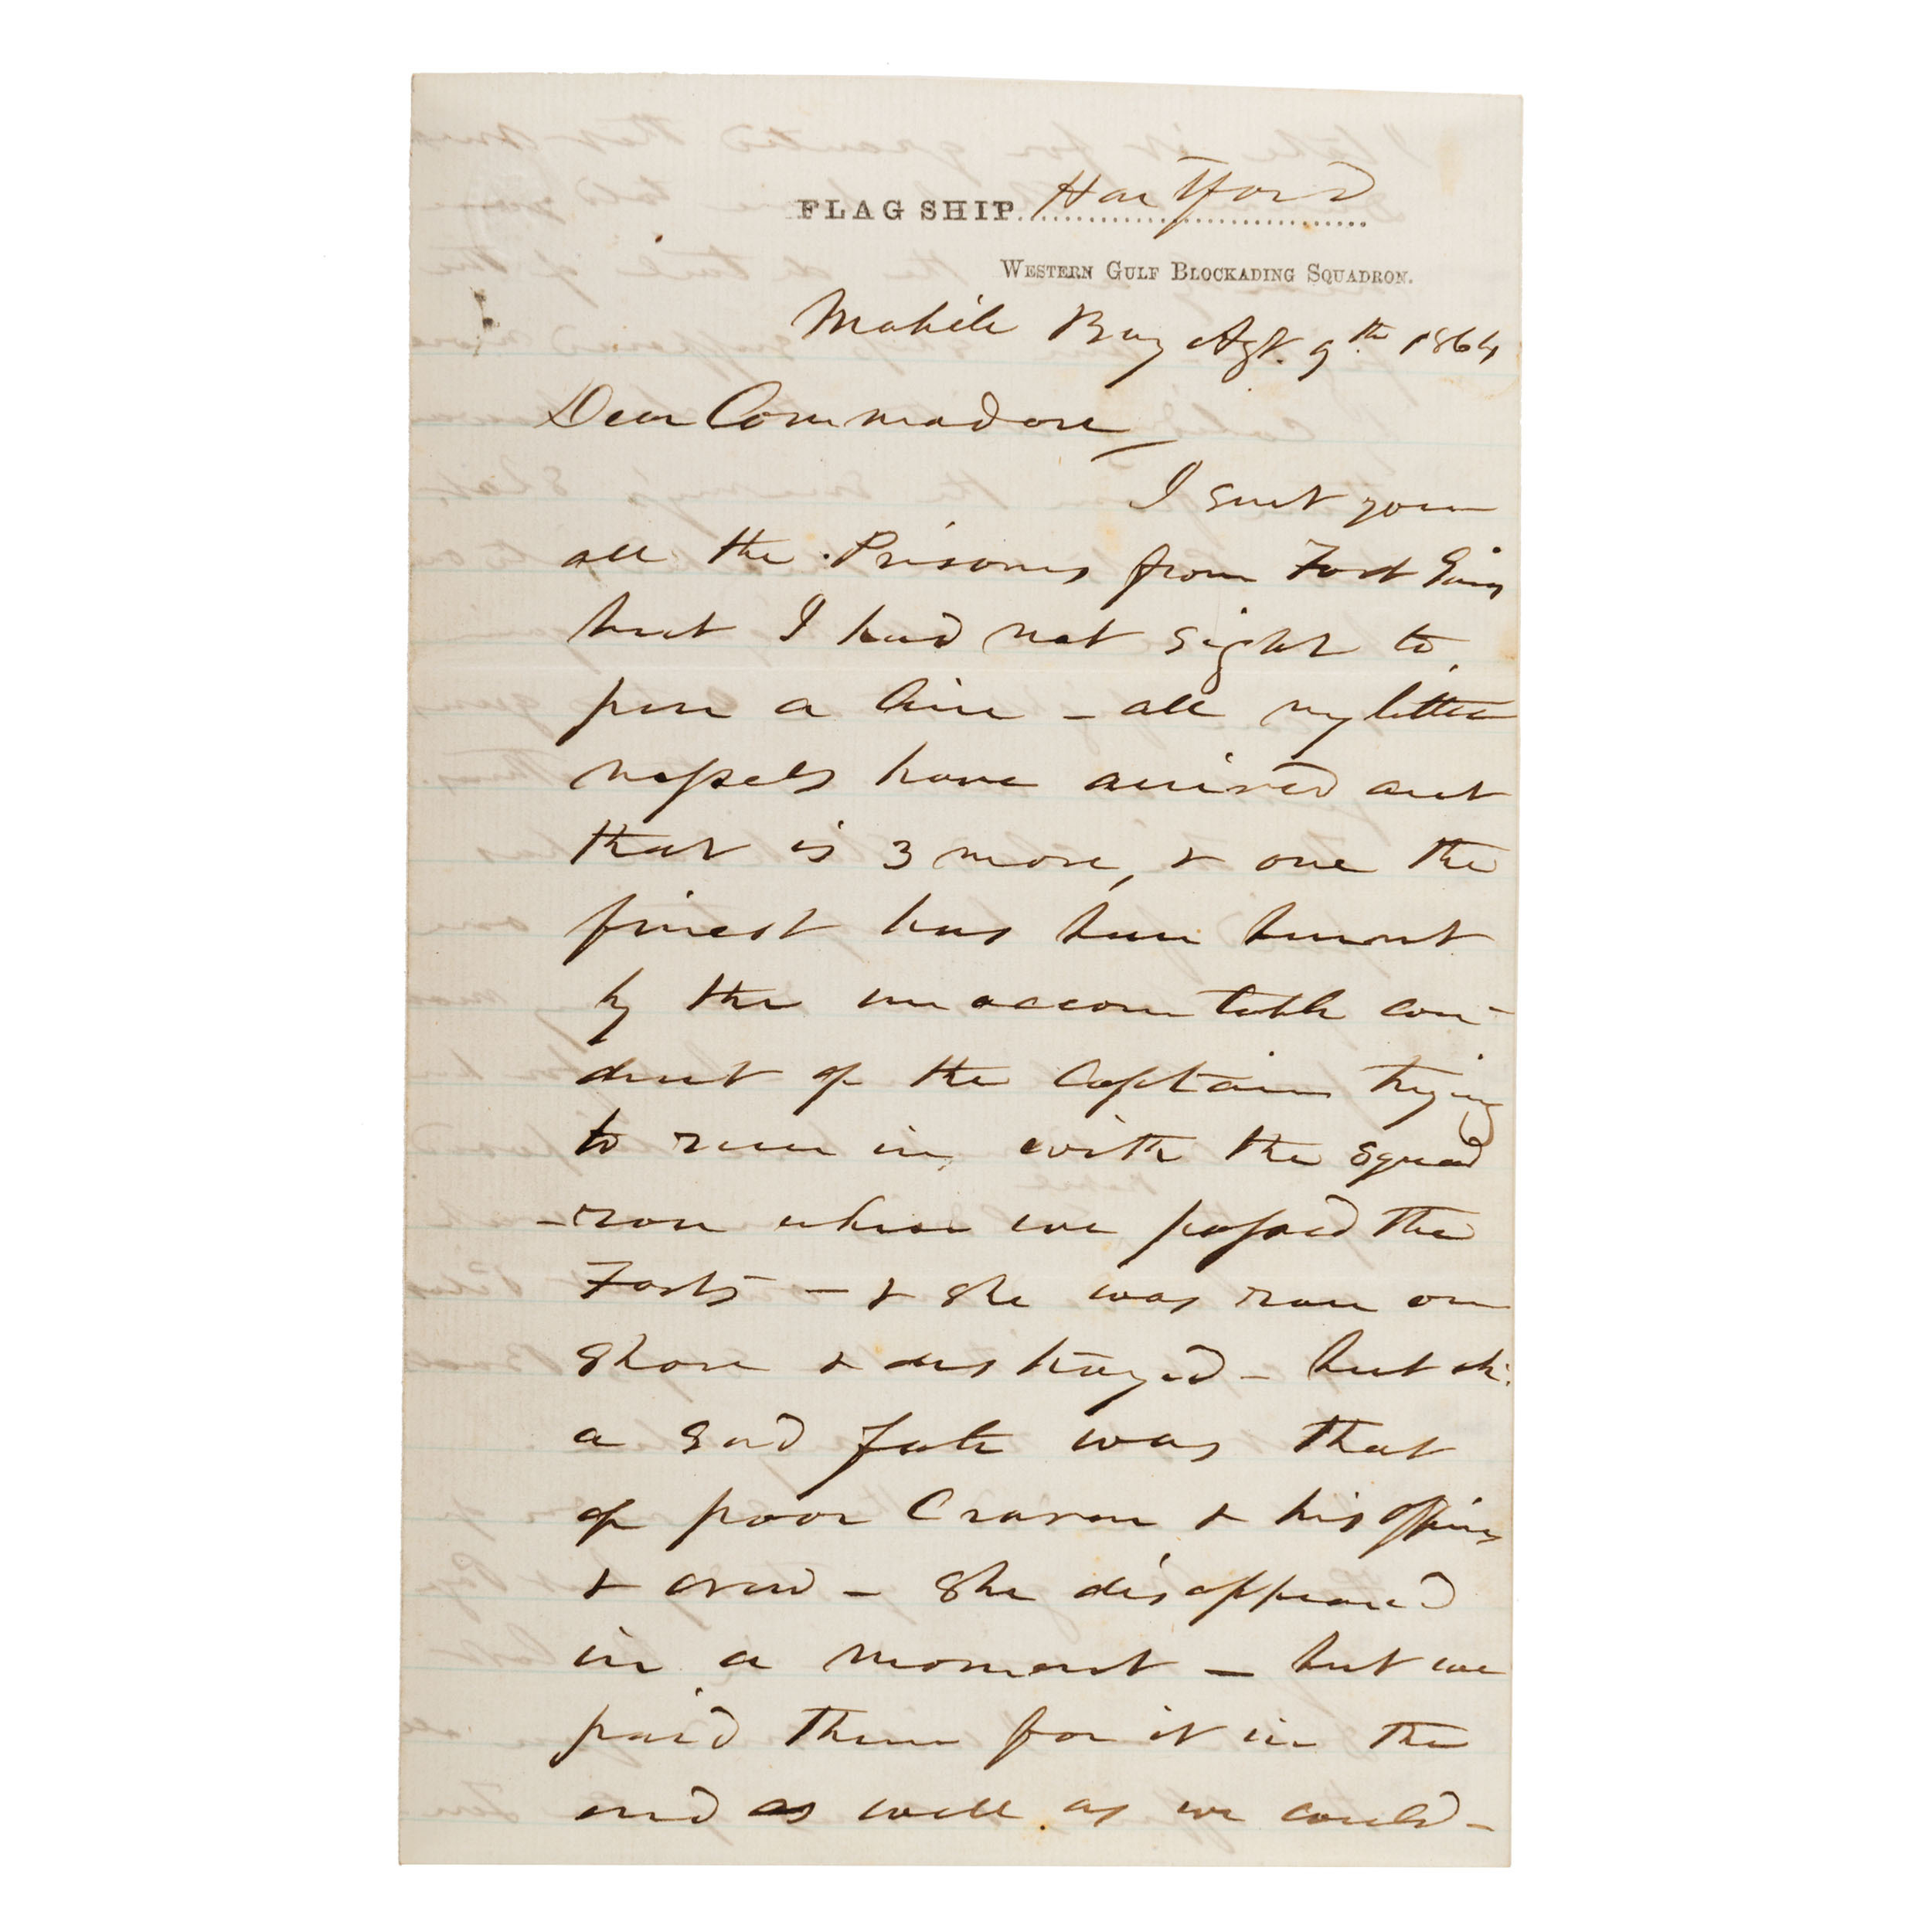 FLAG SHIP Hartford
WESTERN GULF BLOCKADING SQUADRON.
Mobile Bay Agt. 9th 1864
Dear Commodore,
I sent you
all the Prisoners from Fort Gaines
but I had not sight to
pen a line - all my little
vessels have arrived out
that is 3 more, & one the
finest has been burnt
by the unaccountable con-
duct of the Captain trying
to run in with the Squad
-ron when we passed the
Forts - & she was run on
Shore & destroyed - but oh:
a sad fate was that
of poor Craven & his officers
& crew - She disappeared
in a moment - but we
paid them for it in the
end as well as we could -